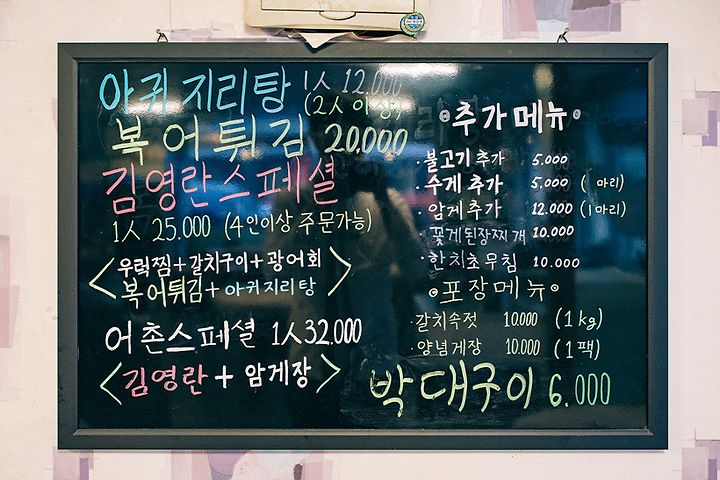 아귀 지리탕 1人 12.000
(2人 이상)
복어튀김 20.000
김영란스페셜
1人 25.000 (4인이상 주문가능)
<우럭찜+갈치구이+광어회
복어튀김+아귀지리탕>
어촌스페셜 1人 32.000
<김영란+암게장>
추가메뉴
·불고기추가 5.000
·수게추가 5.000 ( 마리)
·암게추가 12.000 (1마리)
·꽃게된장찌개 10.000
·한치초무침 10.000
포장메뉴
·갈치속젓 10.000 (1kg)
·양념게장 10.000 (1팩)
박대구이 6.000